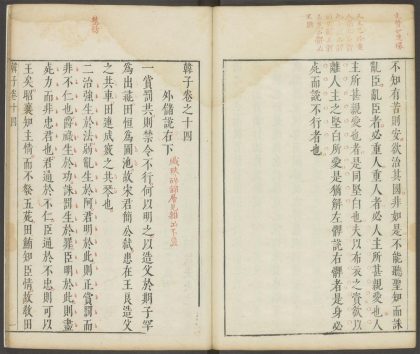 不知有若則安欲治其國非如是不能聽聖知而誅
亂臣亂臣者必重人重人者必人主所甚親愛也人
主所甚親愛也者是同堅白也夫以布衣之資欲以
離人主之堅白所愛是猶以解左髀說右髀者是身必
死而說不行者也
韓子卷之十四
外儲說右下
一賞罰共則禁令不行何以明之以造父於期子罕
為出彘田恒為圃池故宋君簡公弒患在王良造父
之共車田連成竅之共琴也
二治強生於法弱亂生於阿君明於此則正賞罰而
非不仁也爵祿生於功誅罰生於罪臣明於此則盡
死力而非忠君也君通於不仁臣通於不忠則可以
王矣昭襄知主情而不發五苑田鮪知臣情故教田
韓子卷十四